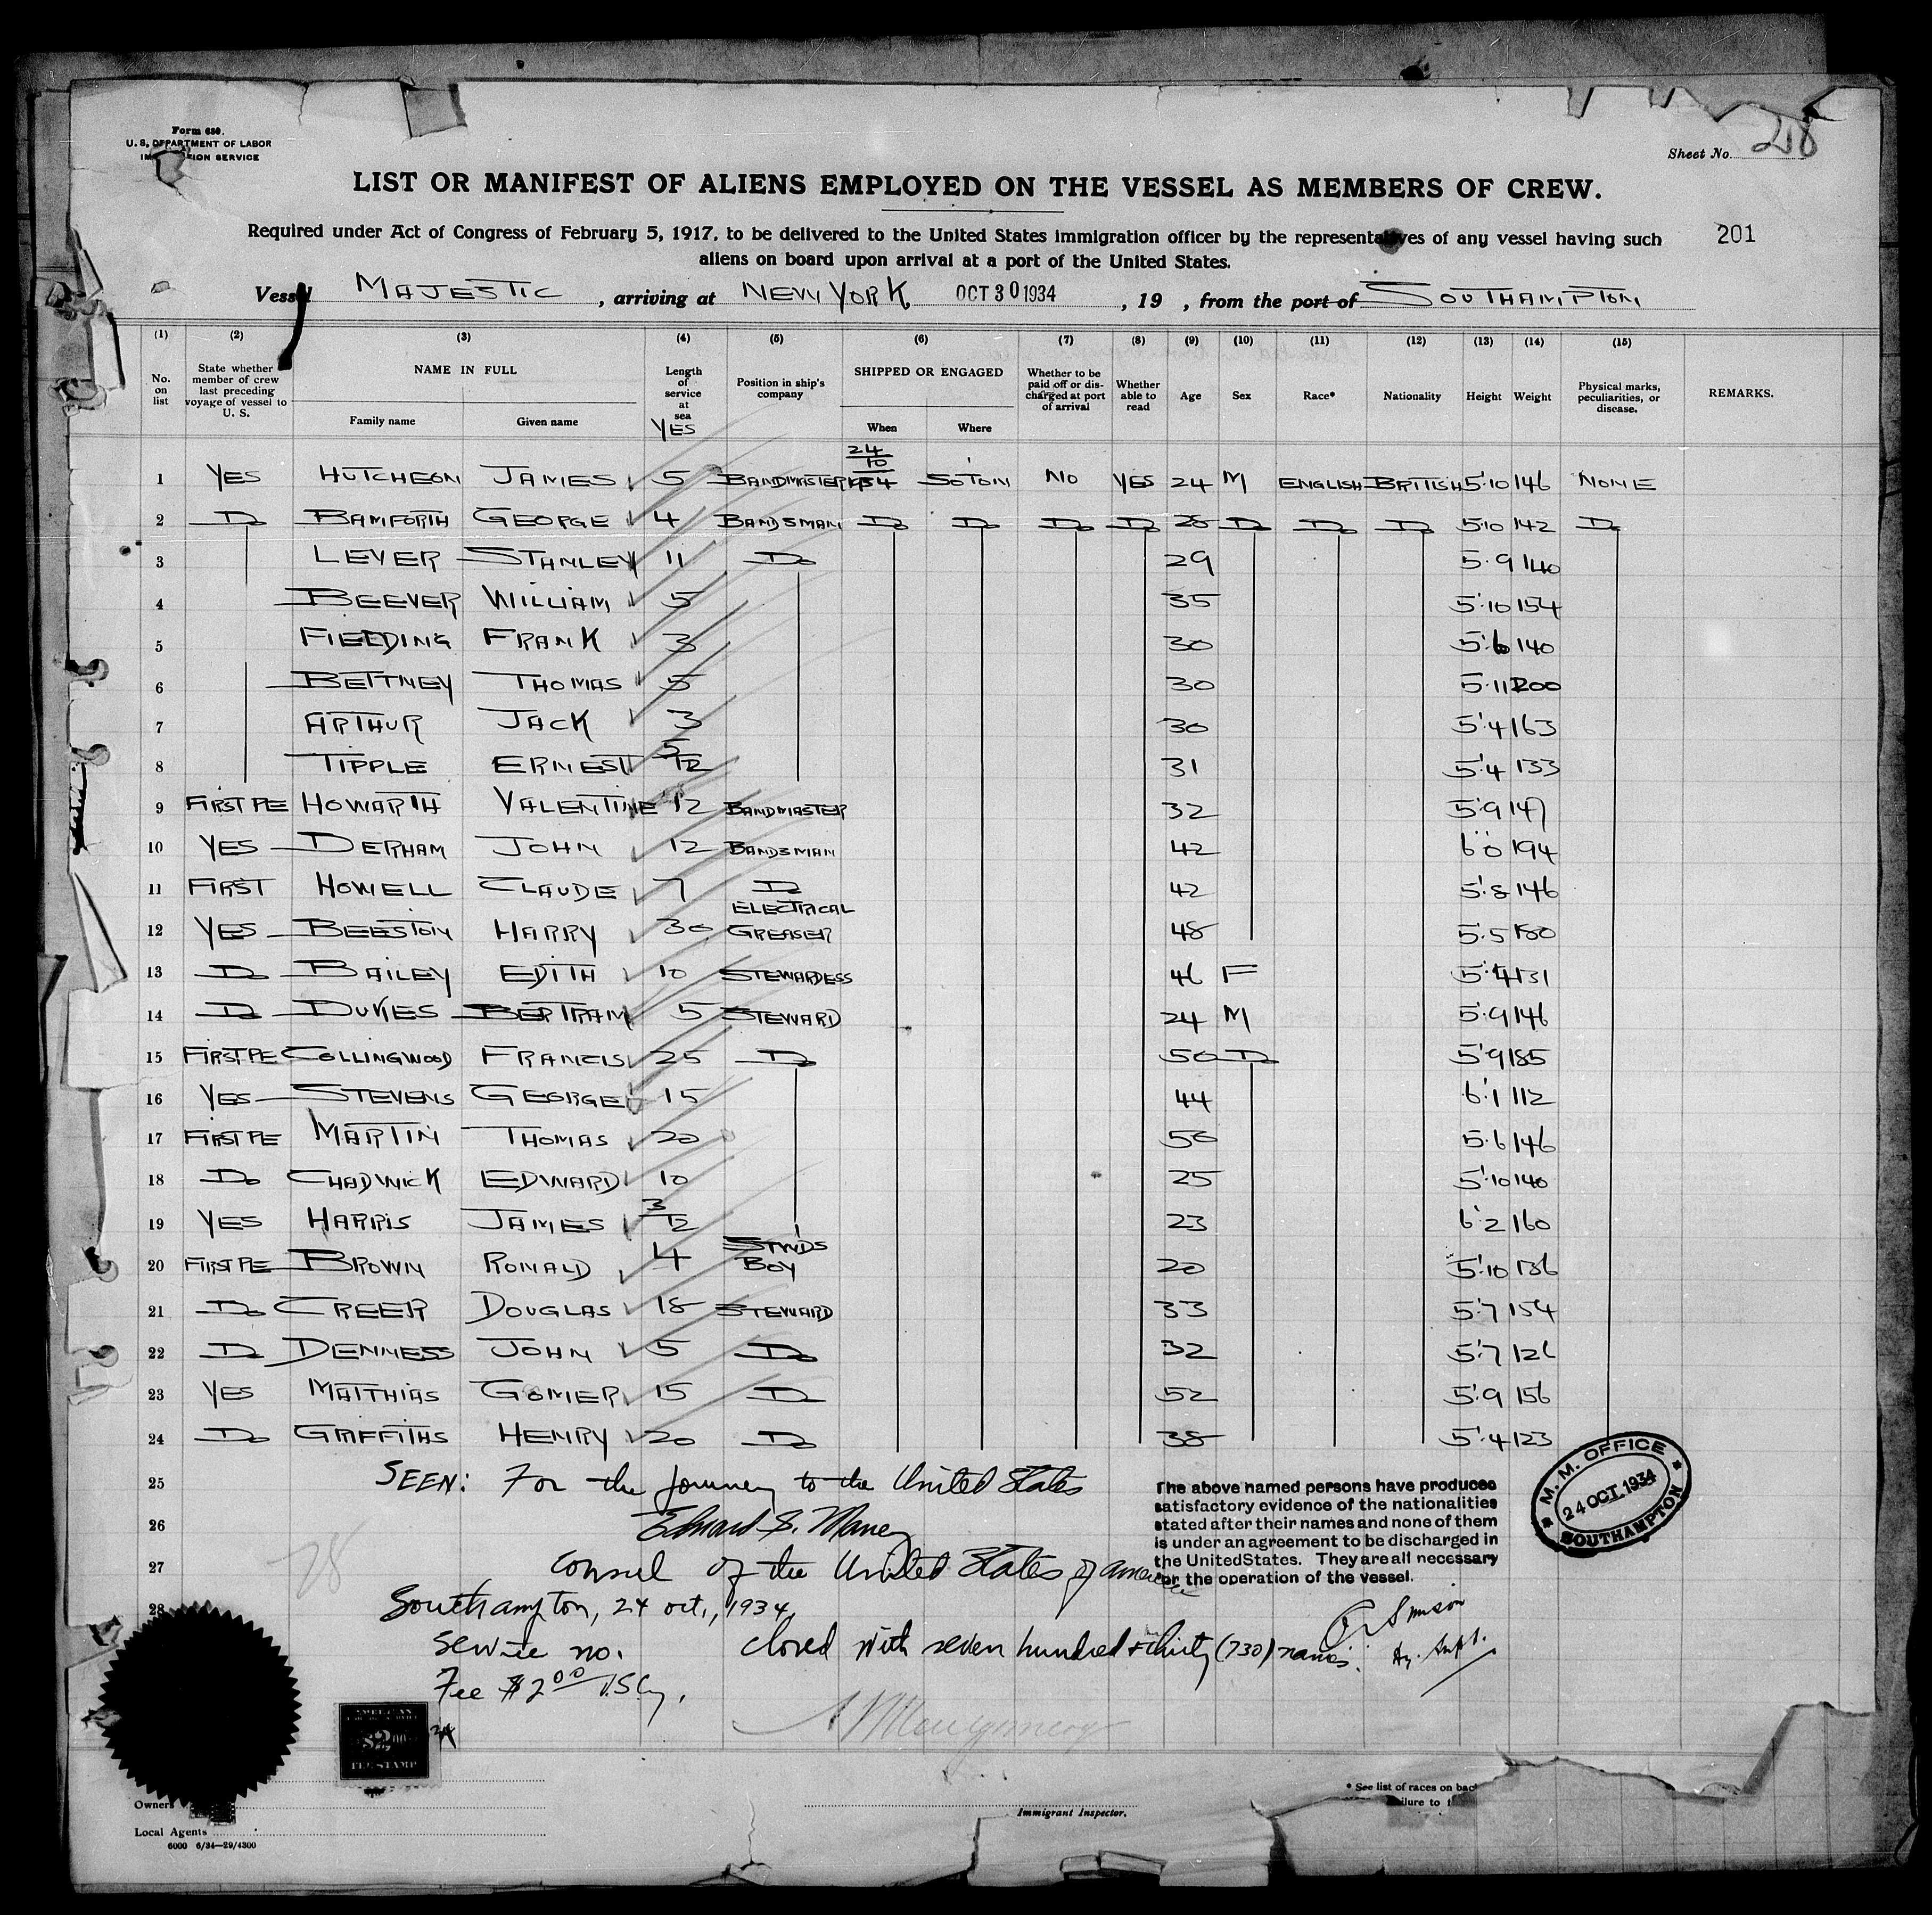 Form 680.
U. S. DEPARTMENT OF LABOR
IMMIGRATION SERVICE
Sheet No. 28
LIST OR MANIFEST OF ALIENS EMPLOYED ON THE VESSEL AS MEMBERS OF CREW.
201
Required under Act of Congress of February 5, 1917, to be delivered to the United States immigration officer by the representatives of any vessel having such
aliens on board upon arrival at a port of the United States.
Vessel MAJESTIC, arriving at NEW YORK OCT 30 1934, 19 , from the port of SOUTHAMPTON
(1) (2) (3) (4) (5) (6) (7) (8) (9) (10) (11) (12) (13) (14) (15)
No. on list State whether member of crew last preceding voyage of vessel to U. S. NAME IN FULL Family name Given name Length of service at sea YES Position in ship's company SHIPPED OR ENGAGED When Where Whether to be paid off or discharged at port of arrival Whether able to read Age Sex Race* Nationality Height Weight Physical marks, peculiarities, or disease. REMARKS.
1 YES HUTCHEON JAMES 5 BANDMASTER 24/10 1934 SOTON NO YES 24 M ENGLISH BRITISH 5'10 146 NONE
2 Do BAMFORTH GEORGE 4 BANDSMAN Do Do Do Do 28 Do Do Do 5'10 142 Do
3 LEVER STANLEY 11 Do 29 5'9 140
4 BEEVER WILLIAM 5 35 5'10 154
5 FIELDING FRANK 3 30 5'6 140
6 BETTNEY THOMAS 5 30 5'11 200
7 ARTHUR JACK 3 30 5'4 163
8 TIPPLE ERNEST 5/12 31 5'4 133
9 FIRST PE HOWARTH VALENTINE 12 BANDMASTER 32 5'9 147
10 YES DERHAM JOHN 12 BANDSMAN 42 6'0 194
11 FIRST HOWELL CLAUDE 7 Do 42 5'8 146
12 YES BEESTON HARRY 30 ELECTRICAL GREASER 48 5'5 180
13 Do BAILEY EDITH 10 STEWARDESS 46 F 5'4 131
14 Do DUKES BERTRAM 5 STEWARD 24 M 5'9 146
15 FIRST PE COLLINGWOOD FRANCIS 25 Do 50 Do 5'9 185
16 YES STEVENS GEORGE 15 44 6'1 112
17 FIRST PE MARTIN THOMAS 20 50 5'6 146
18 Do CHADWICK EDWARD 10 25 5'10 140
19 YES HARRIS JAMES 3/12 23 6'2 160
20 FIRST PE BROWN RONALD 4 STWDS BOY 20 5'10 136
21 Do CREER DOUGLAS 18 STEWARD 33 5'7 154
22 Do DENNESS JOHN 5 Do 32 5'7 126
23 YES MATTHIAS GOMER 15 Do 52 5'9 156
24 Do GRIFFITHS HENRY 20 Do 38 5'4 123
25 SEEN: For the journey to the United States
26 Edward S. Maney
27 Consul of the United States of America
28 Southampton, 24 Oct., 1934.
Service no.
Fee $2.00
closed with seven hundred & thirty (730) names.
The above named persons have produced
satisfactory evidence of the nationalities
stated after their names and none of them
is under an agreement to be discharged in
the United States. They are all necessary
for the operation of the vessel.
M. M. OFFICE
24 OCT. 1934
SOUTHAMPTON
$2.00
FEE STAMP
Owners
Local Agents
6000 6/34—29/4300
Immigrant Inspector.
* See list of races on back